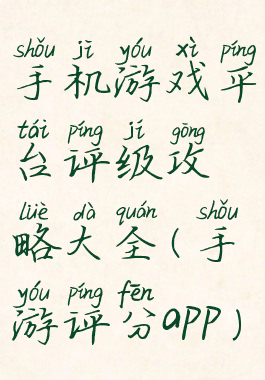 shǒu jī yóu xì píng
手机游戏平
tái píng jí gōng
台评级攻
lüè dà quán shǒu
略大全(手
yóu píng fēn
游评分app)